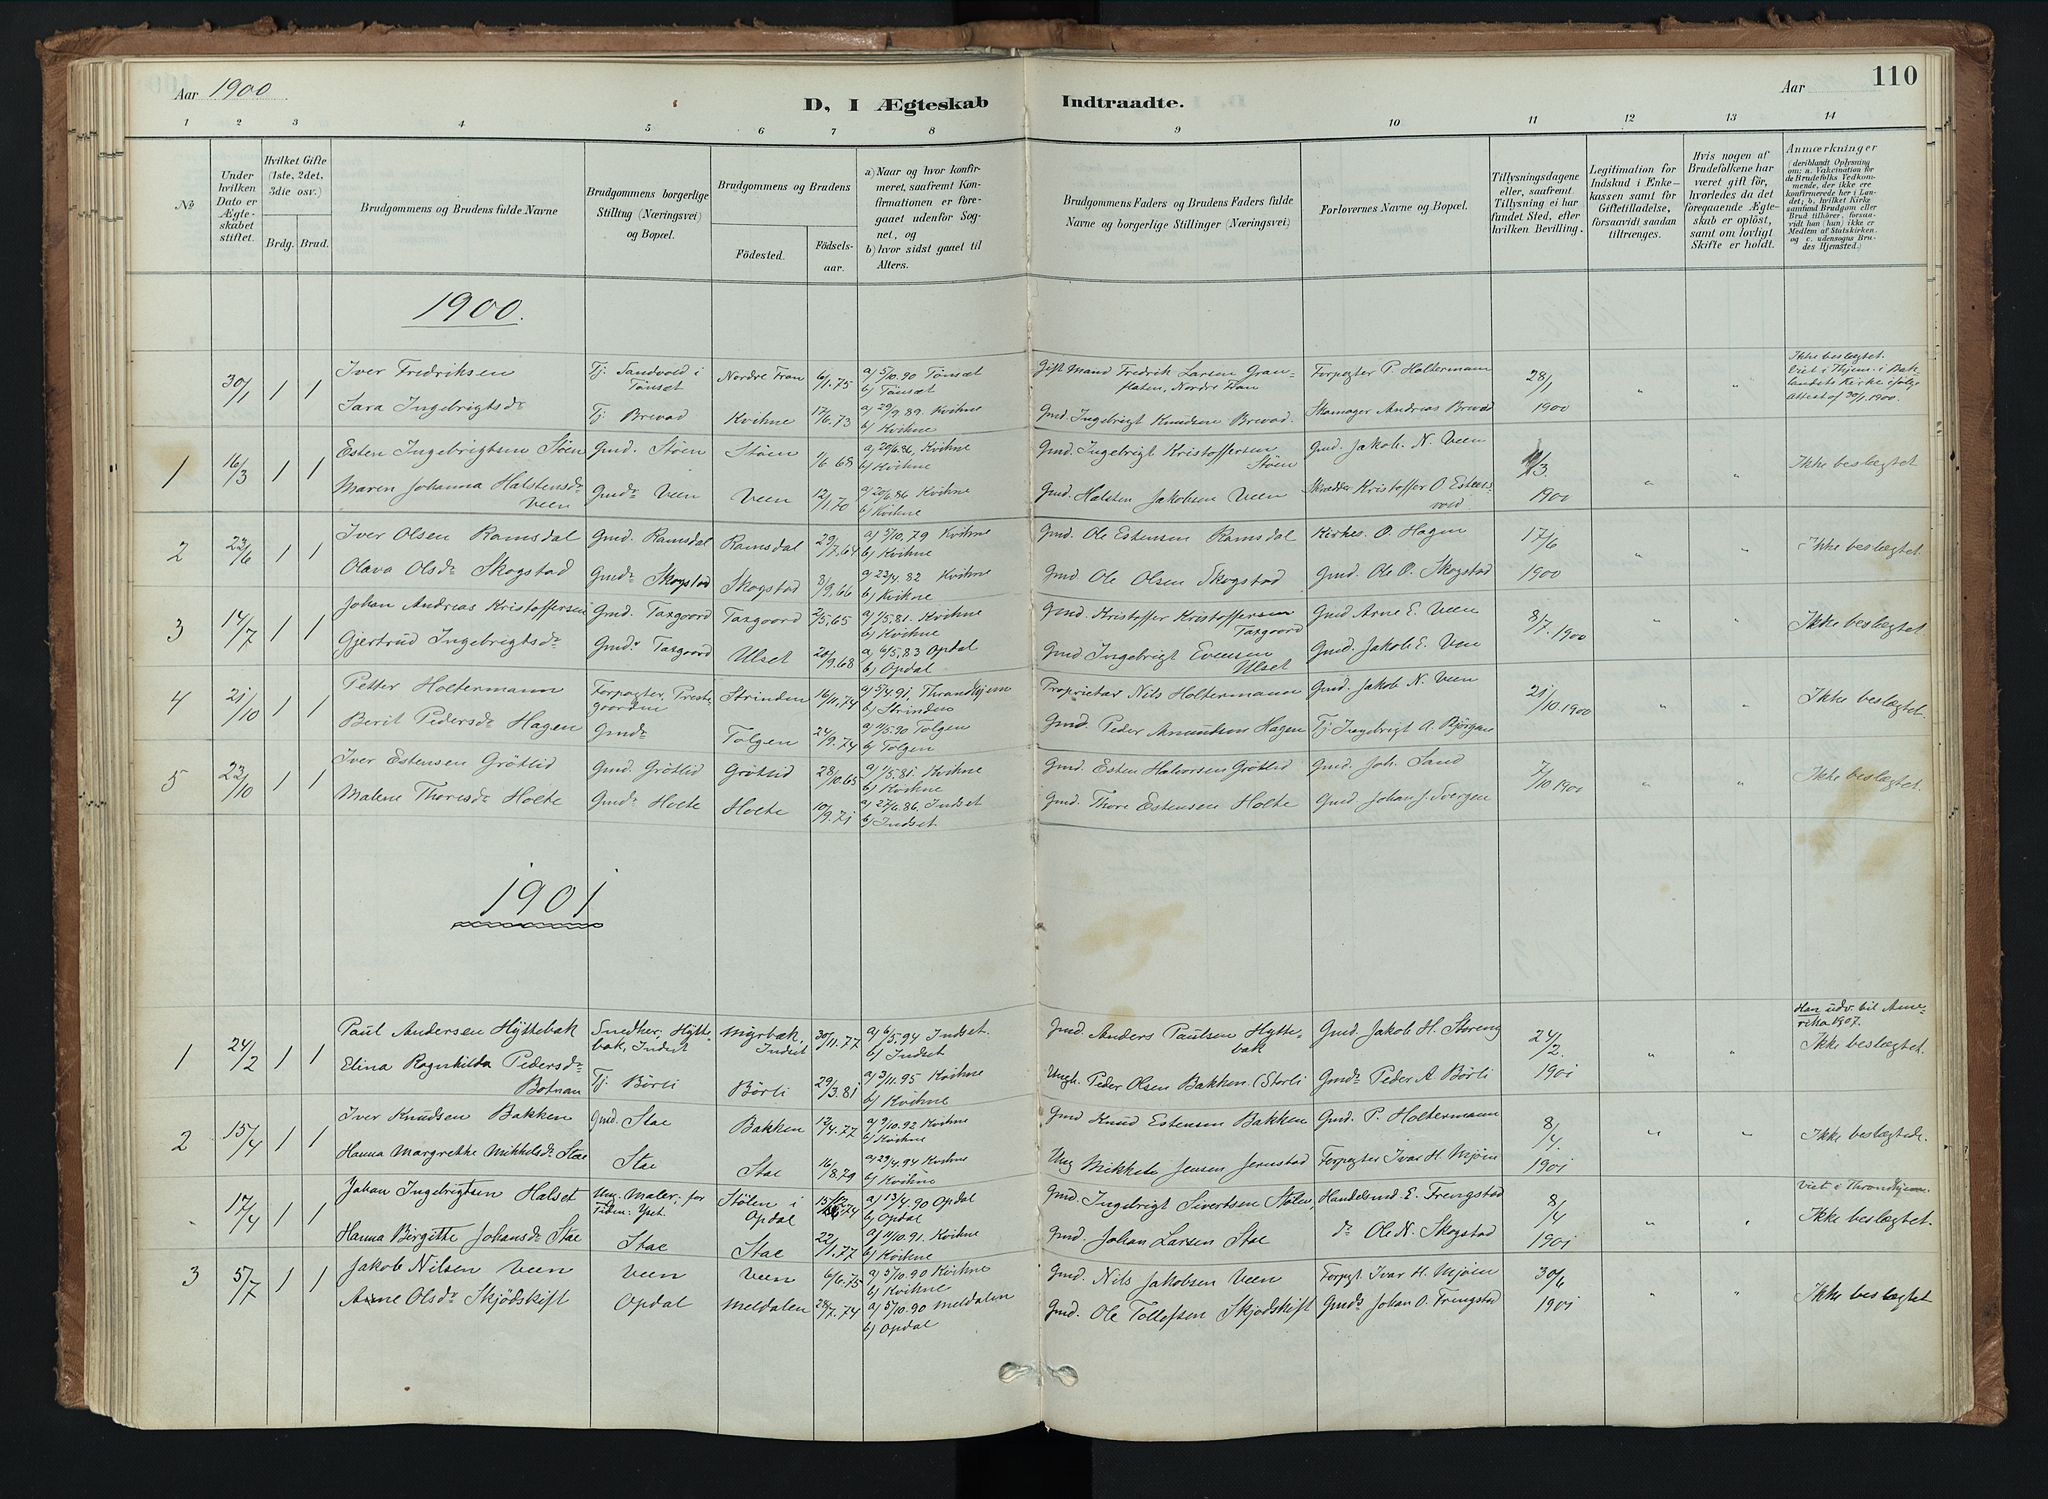 Aar 1900
D, I Ægteskab Indtraadte.
Aar
110
1 2 3 4 5 6 7 8 9 10 11 12 13 14
No
Under hvilken Dato er Ægteskabet stiftet.
Hvilket Gifte (1ste, 2det, 3die osv.)
Brdg. Brud.
Brudgommens og Brudens fulde Navne
Brudgommens borgerlige Stilling (Næringsvei) og Bopæl.
Brudgommens og Brudens
Födested.
Födselsaar.
a) Naar og hvor konfirmeret, saafremt Konfirmationen er foregaaet udenfor Sognet, og
b) hvor sidst gaaet til Alters.
Brudgommens Faders og Brudens Faders fulde Navne og borgerlige Stillinger (Næringsvei)
Forlovernes Navne og Bopæl.
Tillysningsdagene eller, saafremt Tillysning ei har fundet Sted, efter hvilken Bevilling.
Legitimation for Indskud i Enkekassen samt for Giftetilladelse, forsaavidt saadan tiltrænges.
Hvis nogen af Brudefolkene har været gift för, hvorledes da det foregaaende Ægteskab er oplöst, samt om lovligt Skifte er holdt.
Anmærkninger
(deriblandt Oplysning om: a. Vakcination for de Brudefolks Vedkommende, der ikke ere konfirmerede her i Landet; b. hvilket Kirkesamfund Brudgom eller Brud tilhörer, forsaavidt han (hun) ikke er Medlem af Statskirken. og c. udensogns Brudes Hjemsted.)
1900.
30/1 1 1 Iver Fredriksen Tj. Sandvold i Tönset Nordre Fron 6/1.75 a) 5/10.90 Tönsæt b) Tönsæt Gift Mand Fredrik Larsen Granflaten, Nordre Fron Forpagter P. Holtermann 28/1 1900 " " Ikke beslegtet. Viet i Thjem. i Baklandets Kirke ifölge Attest af 30/1.1900.
Sara Ingebrigtsdr Tj. Brevad Kvikne 17/6.73 a) 29/9.89. Kvikne b) Kvikne Gmd. Ingebrigt Knudsen Brevad. Skomager Andreas Brevad
1 16/3 1 1 Esten Ingebrigtsen Stöen Gmd. Stöen Stöen 1/6 68 a) 20/6.86, Kvikne b) Kvikne Gmd. Ingebrigt Kristoffersen Stöen Gmd. Jakob N. Veen /3 1900 " " Ikke beslægtet
Maren Johanna Halstensdr Veen Gmdr Veen Veen 12/1.70 a) 20/6.86 Kvikne b) Kvikne Gmd. Halsten Jakobsen Veen Skrædder Kristoffer O. Estensvold
2 22/6 1 1 Iver Olsen Ramsdal Gmd. Ramsdal Ramsdal 29/7.64 a) 5/10.79 Kvikne b) Kvikne Gmd. Ole Estensen Ramsdal Kirkes. O. Hagen 17/6 1900 " " Ikke beslegtet
Olava Olsdr Skogstad Gmdr Skogstad Skogstad 8/9.66 a) 23/4.82 Kvikne b) Kvikne Gmd Ole Olsen Skogstad Gmd. Ole O. Skogstad
3 14/7 1 1 Johan Andreas Kristoffersen Gmd. Taxgaard Taxgaard 2/5.65 a) 1/5.81. Kvikne b) Kvikne Gmd. Kristoffer Kristoffersen Taxgaard Gmd Arne E. Veen 8/7.1900 " " Ikke beslægtet.
Gjertrud Ingebrigtsdr Gmdr Taxgaard Ulset 20/9.68 a) 6/5.83 Opdal b) Opdal Gmd Ingebrigt Evensen Ulset Gmd. Jakob E. Veen
4 21/10 1 1 Petter Holtermann Forpagter, Prestgaarden Strinden 16/11.74 a) 5/4.91. Throndhjem b) Strinden Proprietær Nils Holtermann Gmd. Jakob N. Veen 21/10.1900 " " Ikke beslægtet.
Berit Pedersdr Hagen Gmdr Tolgen 24/9.74 a) 1/5.90 Tolgen b) Tolgen Gmd. Peder Amundsen Hagen Tj. Ingebrigt A. Björgan
5 23/10 1 1 Iver Estensen Grötlid Gmd. Grötlid Grötlid 28/10.65 a) 1/5.81. Kvikne b) Kvikne Gmd. Esten Halvorsen Grötlid Gmd. Joh. Sand 7/10 1900 " " Ikke beslægtet.
Malene Thoresdr Holte Gmdr Holte Holte 10/9.71 a) 27/6.86, Indset b) Indset. Gmd. Thore Estensen Holte Gmd Johan J. Svergen
1901
1 24/2 1 1 Paul Andersen Hyttebak Snedker, Hyttebak, Indset Myrbæk, Indset 30/11.77 a) 6/5.94 Indset. b) Indset Gmd. Anders Paulsen Hyttebak Gmd. Jakob H. Storeng 24/2. 1901 " " Han udv. til Amerika 1907. Ikke beslægtet.
Elina Ragnhilda Pedersdr Botnan Tj. Börli Börli 29/3.81 a) 3/11.95 Kvikne b) Kvikne Ungk. Peder Olsen Bakken (Storli Gmdr Peder A Börli
2 15/4 1 1 Iver Knudsen Bakken Gmd. Stae Bakken 12/4.77 a) 9/10.92 Kvikne b) Kvikne Gmd Knud Estensen Bakken Gmd. P. Holtermann 8/4. 1901 " " Ikke beslægtede.
Hanna Margrethe Mikkelsdr Stae Stae Stae 16/8.79 a) 29/4.94 Kvikne b) Kvikne Ung Mikkel Jensen Jernstad Forpagter Ivar H. Mjöen
17/4 1 1 Johan Ingebrigtsen Halset Um. Maler, for Tiden Yset. Stölen i Opdal 15/.74 a) 13/4.90 Opdal b) Opdal Gmd. Ingebrigt Sivertsen Stölen, Handelsmd E. Frengstad 8/4 1901 " " Viet i Throndhjem. Ikke beslegtet.
Hanna Birgitte Johansdr Stae Stae Stae 22/1.77 a) 4/10.91. Kvikne b) Kvikne Gmd. Johan Larsen Stae dr Ole N. Skogstad
3 5/7 1 1 Jakob Nilsen Veen Veen Veen 6/6.75 a) 5/10.90 Kvikne b) Kvikne Gmd. Nils Jakobsen Veen Forpgt. Ivar H. Mjöen 30/6 1901 " " Ikke beslægtet
Anne Olsdr Skjödskift Opdal Meldalen 28/7.74 a) 5/10.90 Meldalen b) Opdal Gmd. Ole Tollefsen Skjödskift Gmdr Johan O. Frengstad